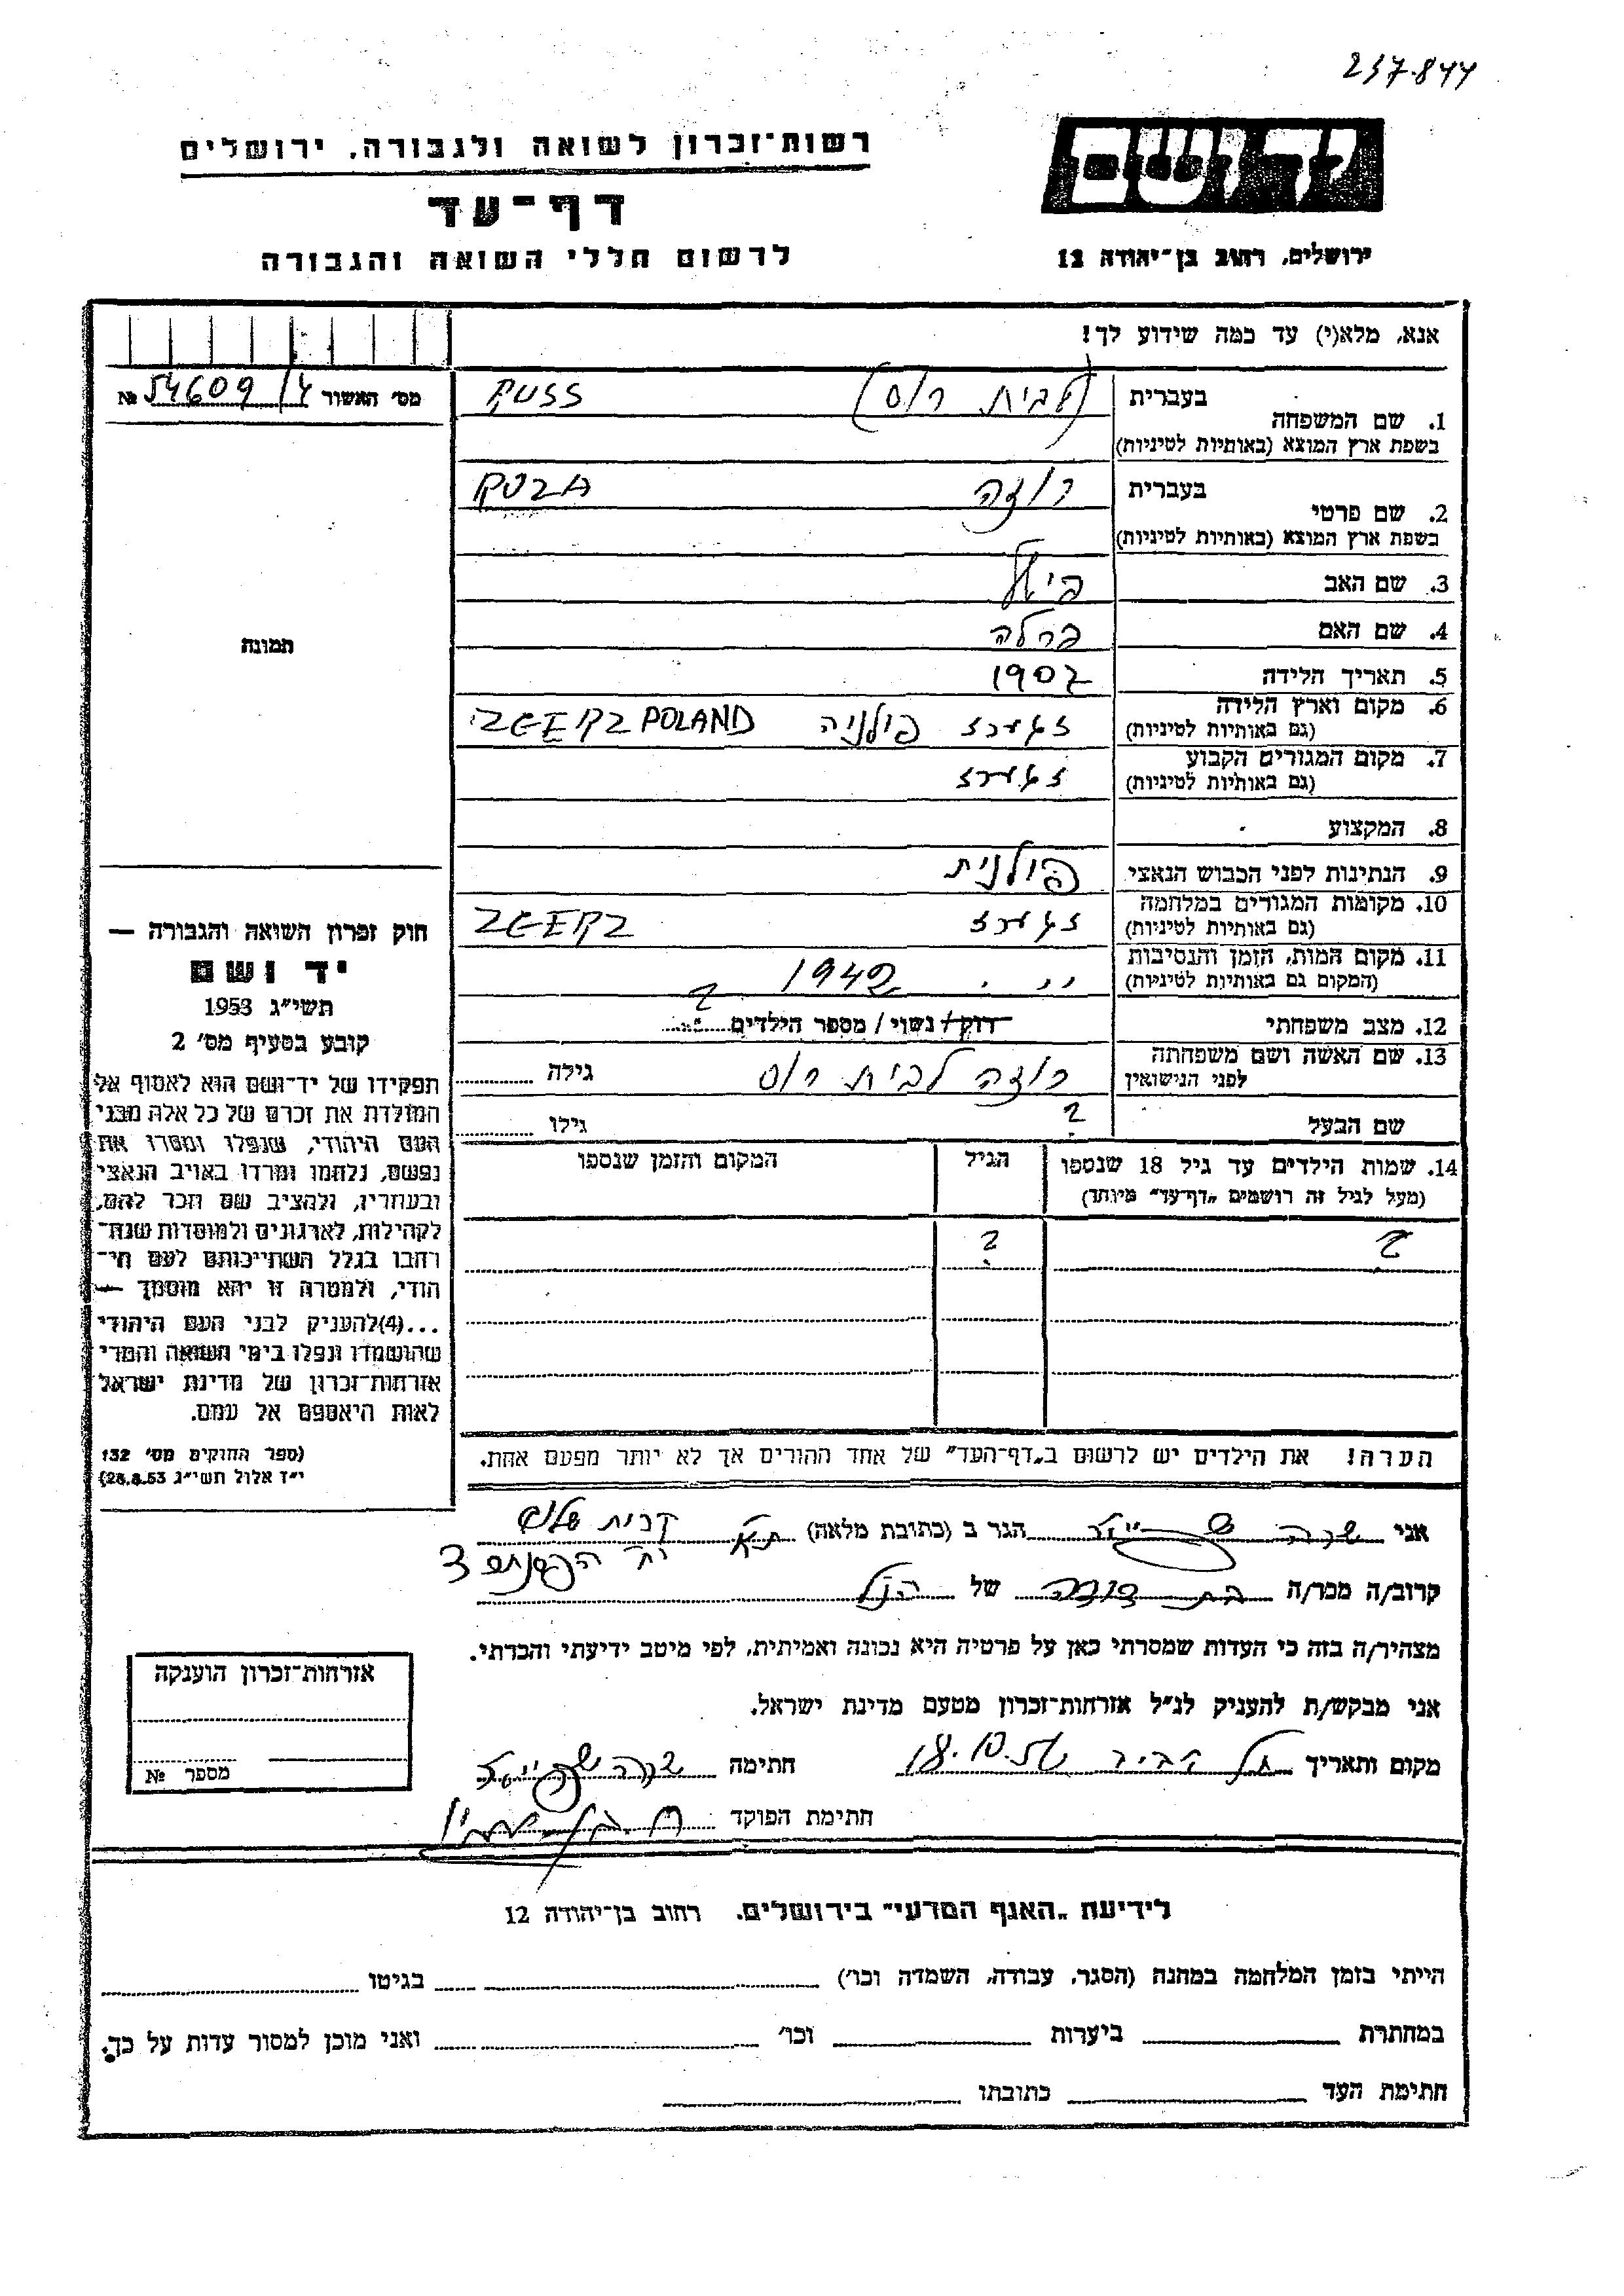 237.844
יד ושם
רשות־זכרון לשואה ולגבורה, ירושלים
דף־עד
לרשום חללי השואה והגבורה
ירושלים, רחוב בן־יהודה 12
אנא, מלא(י) עד כמה שידוע לך!
מס׳ האשור 54609/4 №
1. שם המשפחה
בעברית (לבית רוס) RUSS
בשפת ארץ המוצא (באותיות לטיניות)
2. שם פרטי
בעברית רוזה RUZA
בשפת ארץ המוצא (באותיות לטיניות)
3. שם האב
4. שם האם פרלה
5. תאריך הלידה 1907
6. מקום וארץ הלידה זגערז פולניה ZGERZ POLAND
(גם באותיות לטיניות)
7. מקום המגורים הקבוע זגערז
(גם באותיות לטיניות)
8. המקצוע
9. הנתינות לפני הכבוש הנאצי פולנית
10. מקומות המגורים במלחמה זגערז ZGERZ
(גם באותיות לטיניות)
11. מקום המות, הזמן והנסיבות 1942
(המקום גם באותיות לטיניות)
12. מצב משפחתי רוק/ נשוי/ מספר הילדים ?
13. שם האשה ושם משפחתה רוזה לבית רוס גילה
לפני הנישואין
שם הבעל ? גילו
14. שמות הילדים עד גיל 18 שנספו הגיל המקום והזמן שנספו
(מעל לגיל זה רושמים „דף־עד״ מיוחד)
? ?
הערה! את הילדים יש לרשום ב„דף־העד״ של אחד ההורים אך לא יותר מפעם אחת.
תמונה
חוק זכרון השואה והגבורה —
יד ושם
תשי״ג 1953
קובע בסעיף מס׳ 2
תפקידו של יד־ושם הוא לאסוף אל
המולדת את זכרם של כל אלה מבני
העם היהודי, שנפלו ומסרו את
נפשם, נלחמו ומרדו באויב הנאצי
ובעוזריו, ולהציב שם וזכר להם,
לקהילות, לארגונים ולמוסדות שנח־
רחבו בגלל השתייכותם לעם הי־
הודי, ולמטרה זו יהא מוסמך —
...(4)להעניק לבני העם היהודי
שהושמדו ונפלו בימי השואה והמרי
אזרחות־זכרון של מדינת ישראל
לאות היאספם אל עמם.
(ספר החוקים מס׳ 132
י״ז אלול תשי״ג 28.8.53)
אני שרה הגר ב (כתובת מלאה) ת״א קרית שלום
קרוב/ה מכר/ה בת דודה של הנ״ל
מצהיר/ה בזה כי העדות שמסרתי כאן על פרטיה היא נכונה ואמיתית, לפי מיטב ידיעתי והכרתי.
אני מבקש/ת להעניק לנ״ל אזרחות־זכרון מטעם מדינת ישראל.
מקום ותאריך תל אביב 18.10.56 חתימה שרה
חתימת הפוקד
אזרחות־זכרון הוענקה
מספר №
לידיעת „האגף המדעי״ בירושלים, רחוב בן־יהודה 12
הייתי בזמן המלחמה במחנה (הסגר, עבודה, השמדה וכו׳) בגיטו
במחתרת ביערות וכו׳ ואני מוכן למסור עדות על כך.
חתימת העד כתובתו